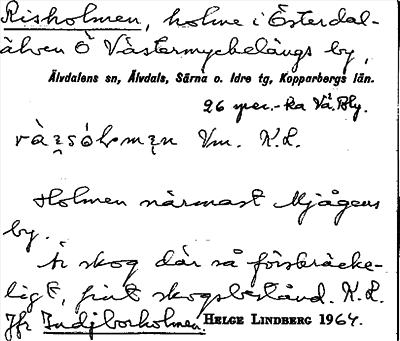 Risholmen, holme i Österdal-
älven Ö Västermyckelängs by,
Älvdalens sn, Älvdals, Särna o. Idre tg, Kopparbergs län.
26 yrer.-ka Vä. Bly.
Vm. K.L.
Holmen närmast Mjågens
by.
Är skog där så förskräcke-
ligt, fint skogsbestånd. K.L.
Jfr Indjborholmen.
HELGE LINDBERG 1964.